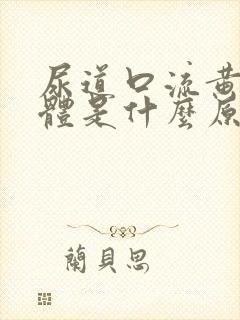 尿道口流黄
體是什麼原
蘭貝思